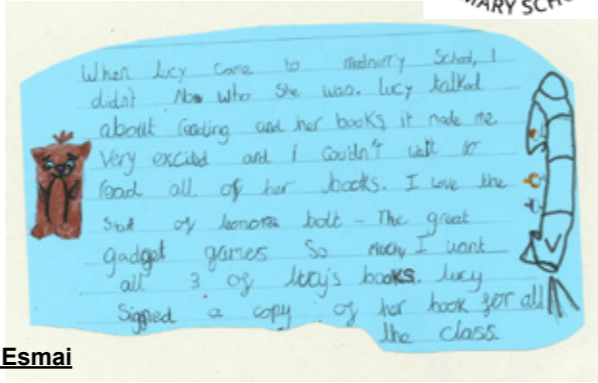 MARY SCHO
When lucy came to mednerry School, I
didn't Now who she was. lucy talked
about reading and her books it made me
very excited and I couldn't wait to
read all of her books. I love the
of leonora bolt - The great
gadget games So much I want
all 3 of lucy's books. lucy
Signed a copy of her book for all
the class.
Esmai